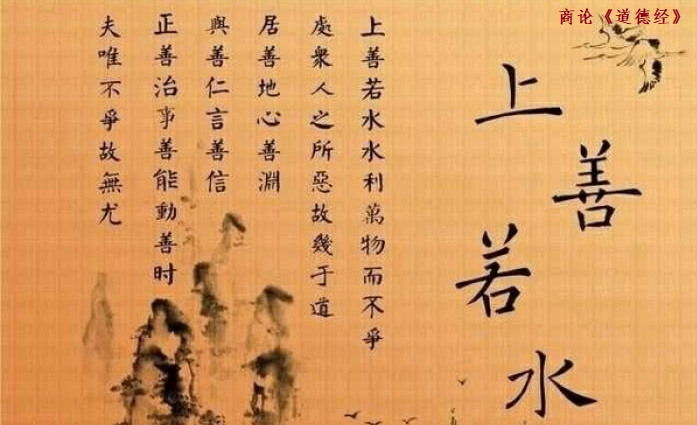 商论《道德经》
上善若水
上善若水水利萬物而不爭
處衆人之所惡故幾于道
居善地心善淵
與善仁言善信
正善治事善能動善时
夫唯不爭故無尤